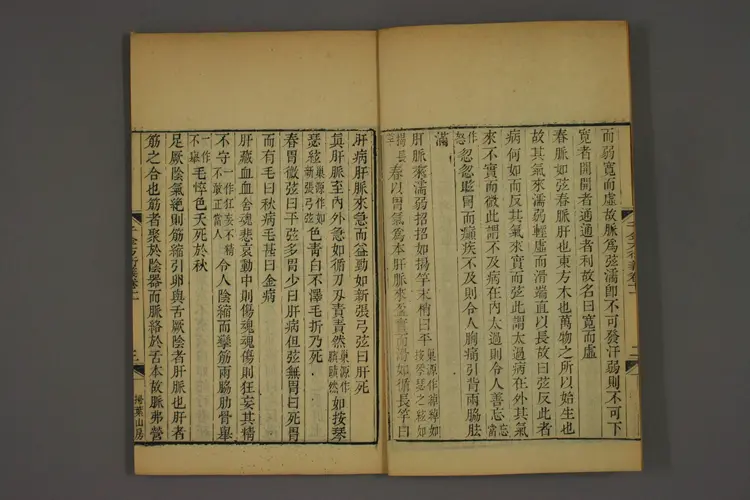 而弱寬而虛故脈為弦濡即不可發汗弱則不可下
寬者開開者通通者利故名曰寬而虛
春脈如弦春脈肝也東方木也萬物之所以始生也
故其氣來濡弱輕虛而滑端直以長故曰弦反此者
病何如而反其氣來實而弦此謂太過病在外其氣
來不實而微此謂不及病在內太過則令人善忘忘當
作怒忽忽眩冒而癲疾不及則令人胸痛引背兩脇胠
滿
肝脈來濡弱招招如揚竿末梢曰平巢源作綽綽如按琴瑟之絃如
揚長竿春以胃氣為本肝脈來盈實而滑如循長竿曰
肝病肝脈來急而益勁如新張弓弦曰肝死
真肝脈至內外急如循刀刃責責然巢源作賾賾然如按琴
瑟絃巢源作如新張弓弦色青白不澤毛折乃死
春胃微弦曰平弦多胃少曰肝病但弦無胃曰死胃
而有毛曰秋病毛甚曰金病
肝藏血血舍魂悲哀動中則傷魂魂傷則狂妄其精
不守一作狂妄不精不敢正當人令人陰縮而攣筋兩脇肋骨舉
一作不舉毛悴色夭死於秋
足厥陰氣絕則筋縮引卵與舌厥陰者肝脈也肝者
筋之合也筋者聚於陰器而脈絡於舌本故脈弗營
千金方衍義卷十一
二
千金方衍義卷十一
三
掃葉山房